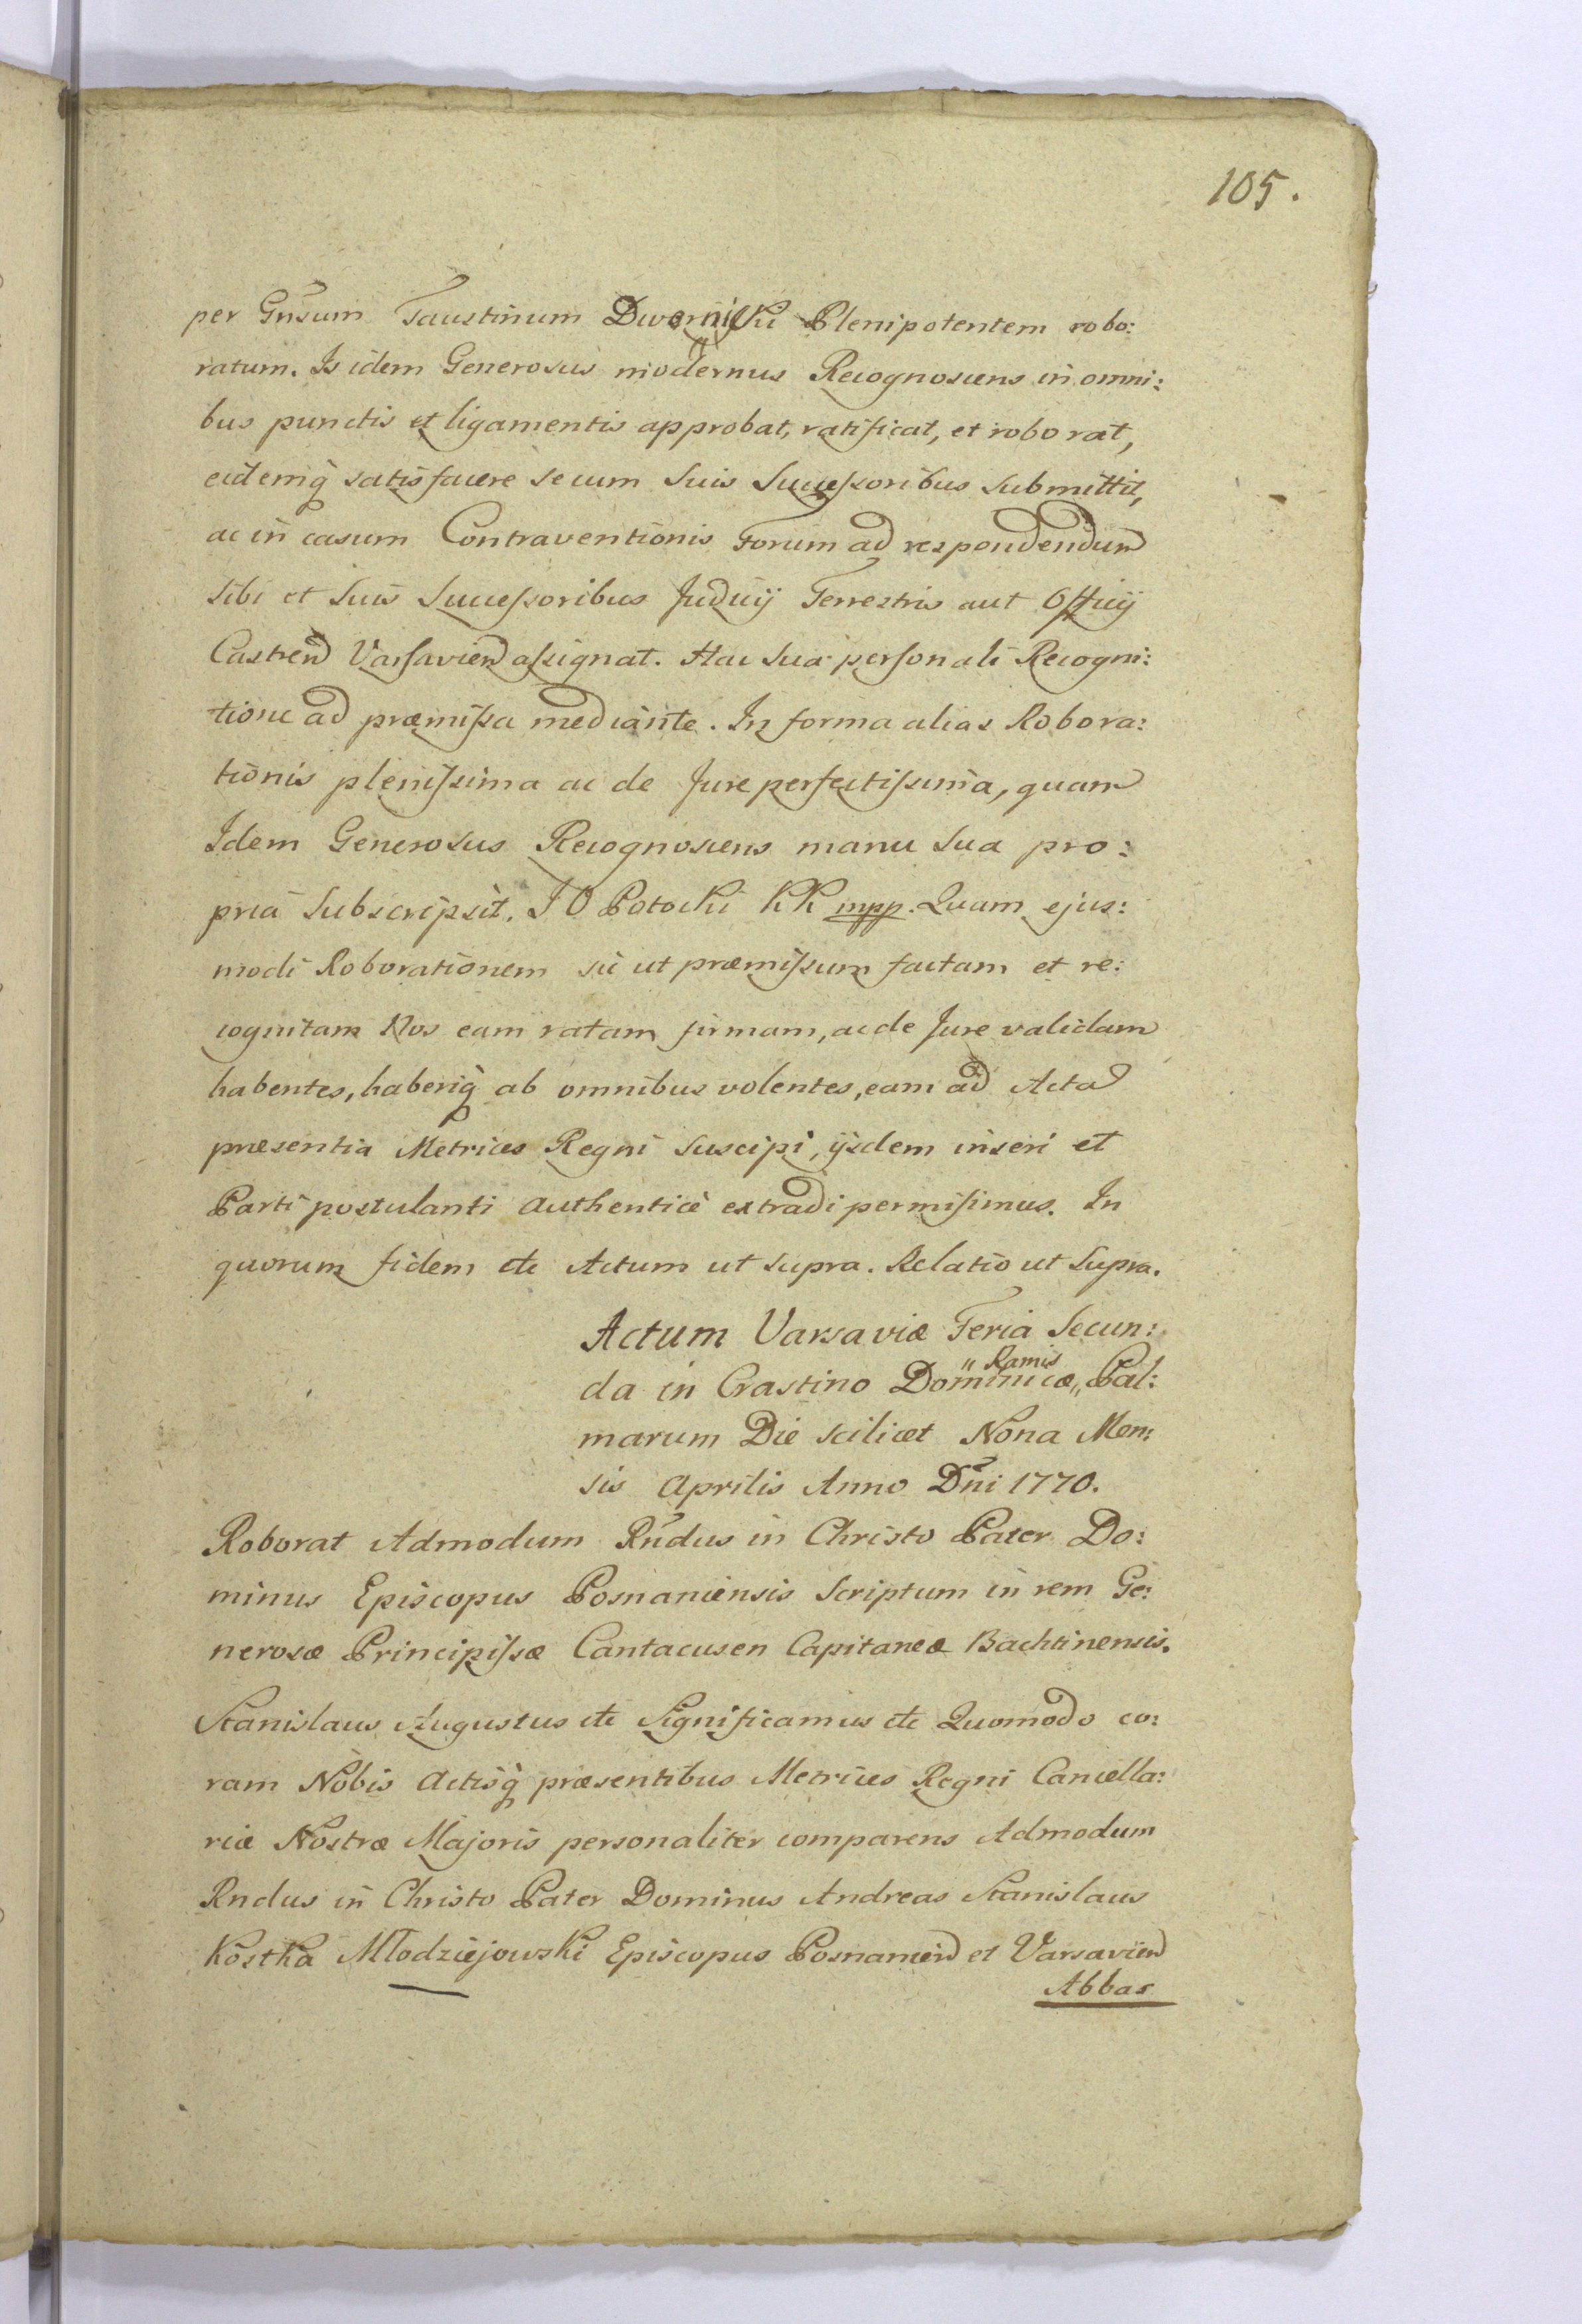 105.
per Gnsum Faustinum Dwernicki Plenipotentem robo:
ratum. Is idem Generosus modernus Recognoscens in omni:
bus punctis et ligamentis approbat, ratificat, et roborat,
eidemq̀ satisfacere secum suis Successoribus submittit,
ac in casum Contraventionis Forum ad respondendum
sibi et suis Successoribus Judicij Terrestris aut Officij
Castren Varsavien assignat. Hac sua personali Recogni:
tione ad præmissa mediante. In forma alias Robora:
tionis plenissima ac de Jure perfectissima, quam
Idem Generosus Recognoscens manu sua pro:
pria subscripsit. J O Potocki KK mpp. Quam ejus:
modi Roborationem sic ut præmissum factam et re:
cognitam Nos eam ratam firmam, ac de Jure validam
habentes, haberiq̀ ab omnibus volentes, eam ad Acta
præsentia Metrices Regni suscipi, ijsdem inseri et
Parti postulanti authenticè extradi permisimus. In
quorum fidem etc Actum ut supra. Relatio ut supra.
Actum Varsaviæ Feria Secun:
da in Crastino Dominicæ „ Ramis „ Pal:
marum Die scilicet Nona Men:
sis Aprilis Anno Dni 1770.
Roborat Admodum Rndus in Christo Pater Do:
minus Episcopus Posnaniensis Scriptum in rem Ge:
nerosæ Principissæ Cantacusen Capitaneæ Bachtinensis.
Stanislaus Augustus etc Significamus etc Quomodo co:
ram Nobis Actisq̀ præsentibus Metrices Regni Cancella:
riæ Nostræ Majoris personaliter comparens Admodum
Rndus in Christo Pater Dominus Andreas Stanislaus
Kostka Młodziejowski Episcopus Posnanien et Varsavien
Abbas